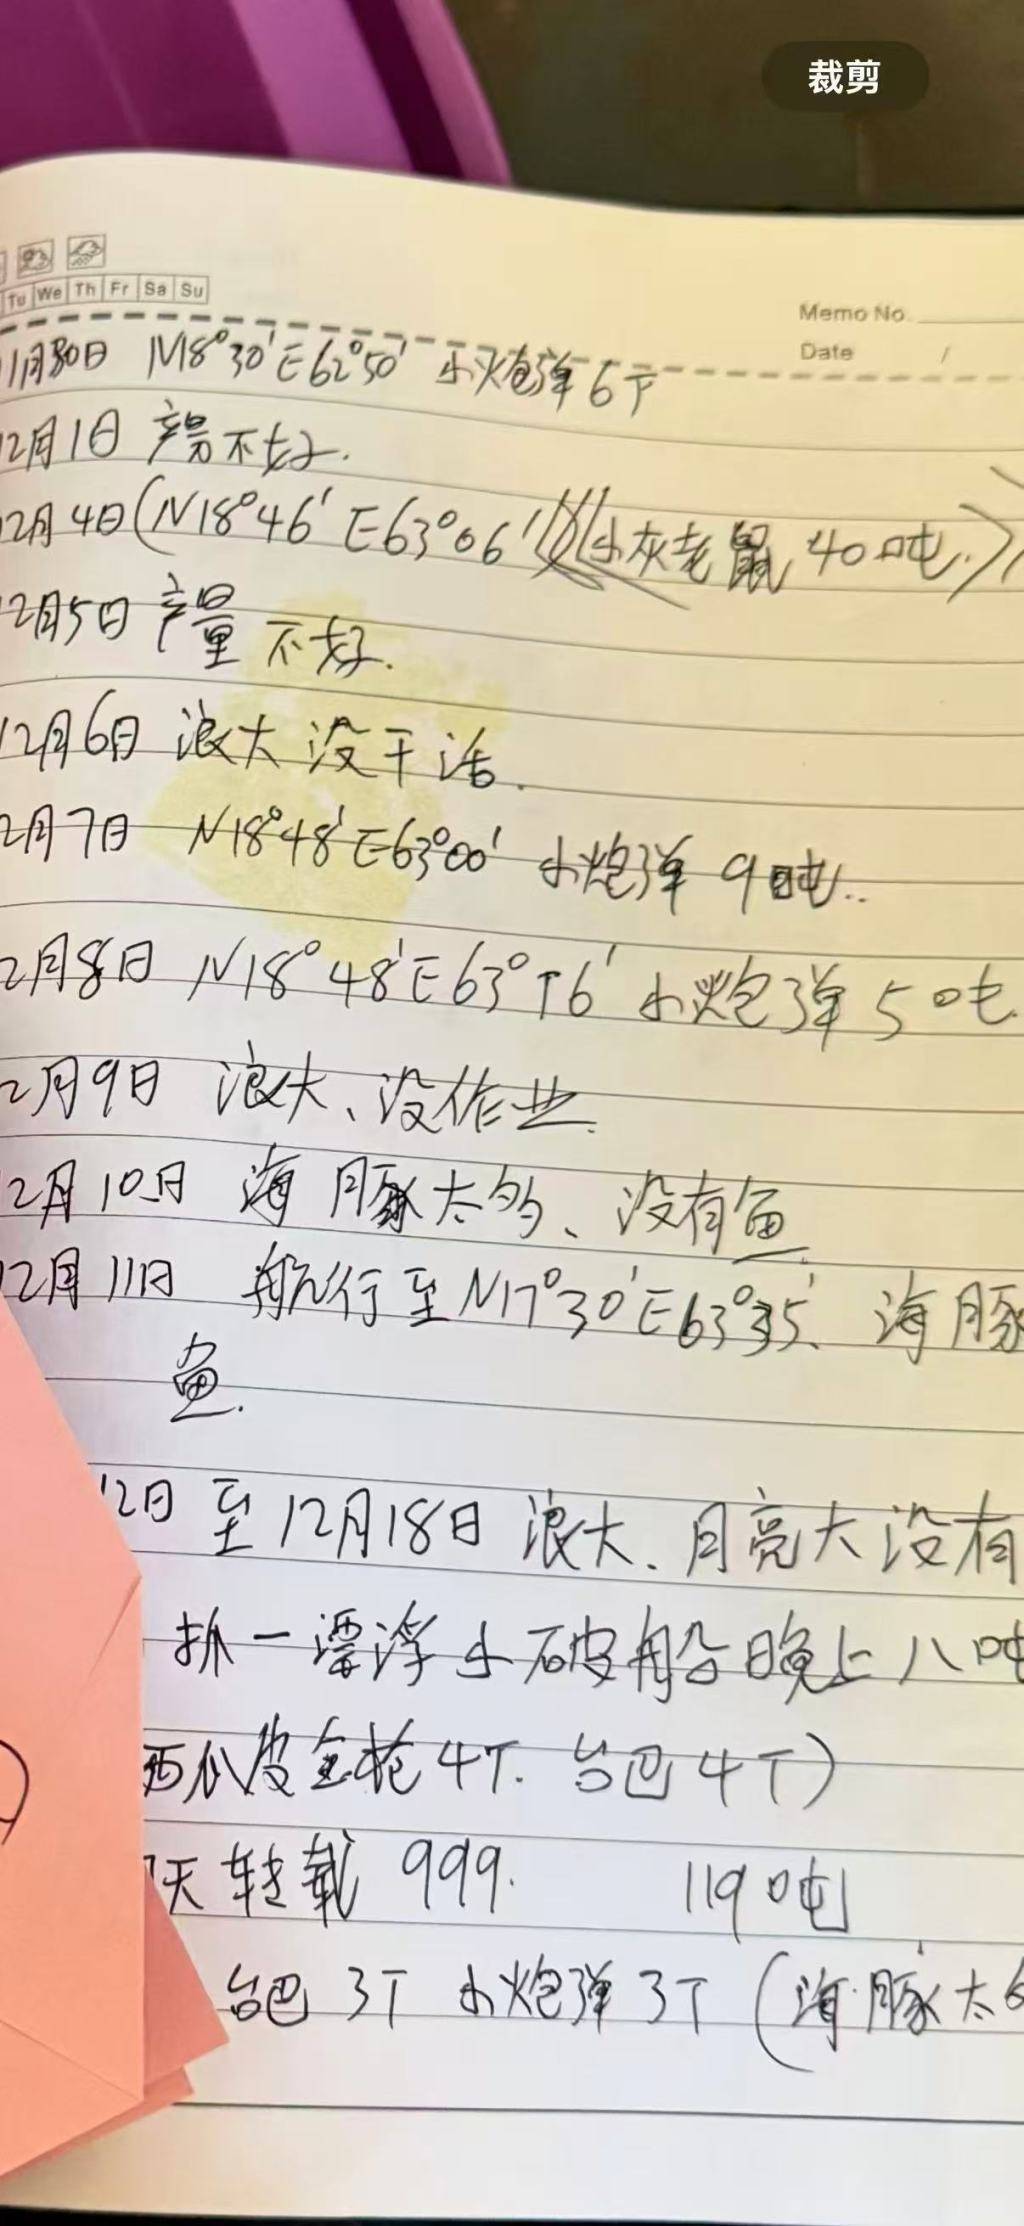 裁剪
Tu We Th Fr Sa Su
Memo No.
Date /
11月30日 N18°30′E62°50′ 小炮弹6T
12月1日 产量不好.
12月4日(N18°46′E63°06′ 小灰老鼠40吨.)
12月5日 产量不好.
12月6日 浪大没干活.
2月7日 N18°48′E63°00′ 小炮弹9吨..
2月8日 N18°48′E63°16′小炮弹5吨.
2月9日 浪大、没作业.
2月10日 海豚太多、没有鱼.
12月11日 航行至N17°30′E63°35′、海豚
鱼.
12日至12月18日浪大、月亮大没有
抓一漂浮小破船晚上八吨
西瓜皮金枪4T. 台巴4T)
天转载 999. 119吨
台巴 3T 小炮弹3T (海豚太